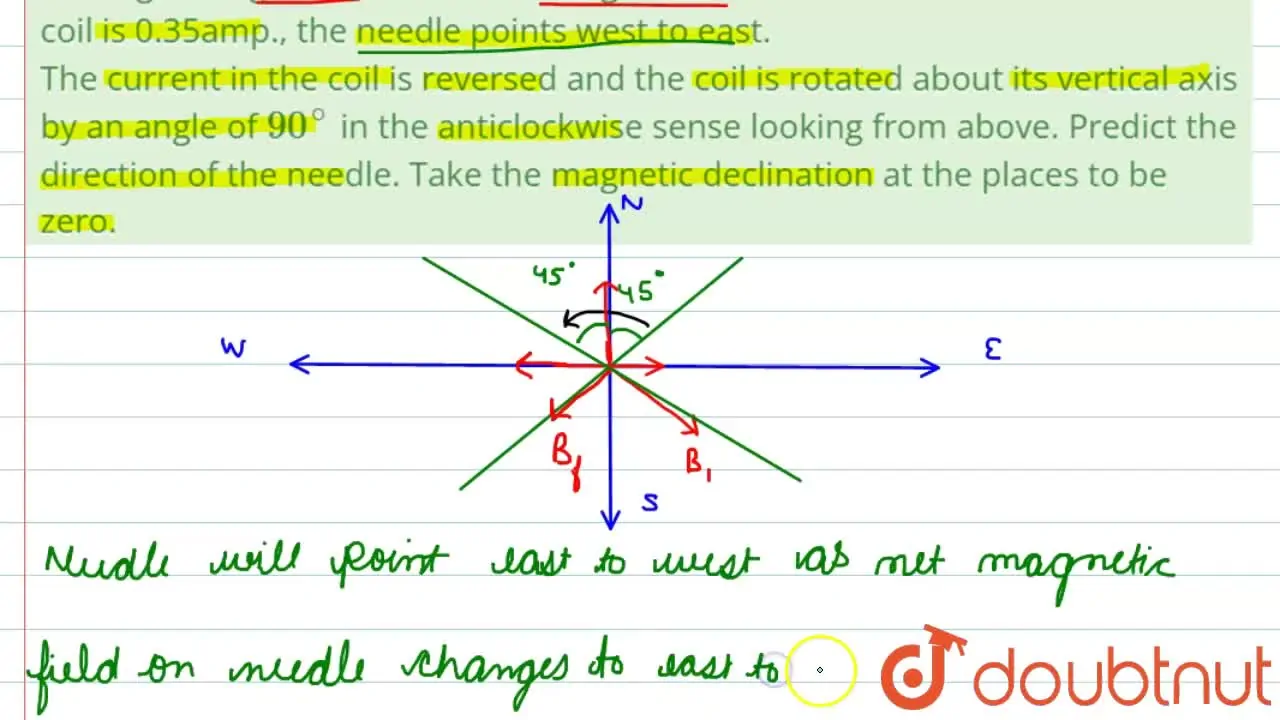 coil is 0.35amp., the needle points west to east.
The current in the coil is reversed and the coil is rotated about its vertical axis
by an angle of 90° in the anticlockwise sense looking from above. Predict the
direction of the needle. Take the magnetic declination at the places to be
zero.
N
45° 45°
W E
Bf B1
S
Needle will point east to west as net magnetic
field on needle changes to east to
doubtnut